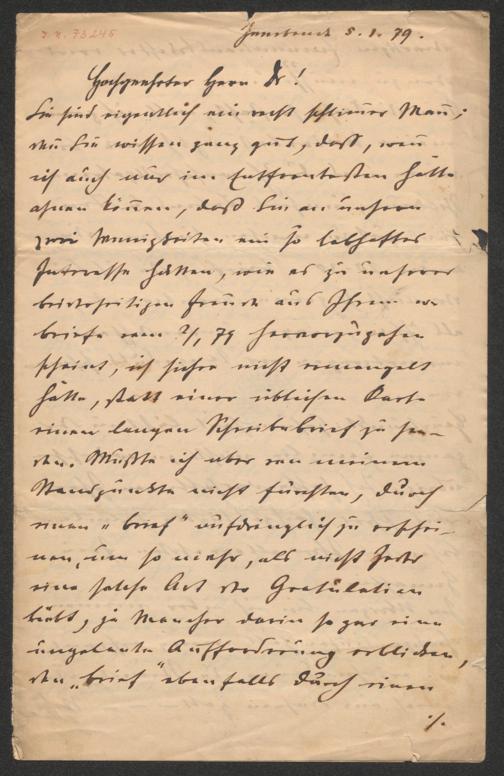 I. N. 73245
Innsbruck 5. 1. 79.
Hochgeehrter Herr Dr!
Sie sind eigentlich ein recht schlimer Mañ;
deñ Sie wissen ganz gut, daß, weñ
ich auch nur im Entferntesten hätte
ahnen köñen, daß Sie an unseren
zwei Wenigkeiten ein so lebhaftes
Interesse hätten, wie es zu unserer
beiderseitigen Freude aus Ihrem
briefe vom 2/1 79 hervorzugehen
scheint, ich sicher nicht ermangelt
hätte, statt einer üblichen Karte
einen langen Schreibebrief zu sen-
den. Mußte ich aber von meinem
Standpunkte nicht fürchten, durch
einen „brief" aufdringlich zu erschei-
nen, um so mehr, als nicht Jeder
eine solche Art der Gratulation
liebt, ja Mancher darin sogar eine
ungalante Aufforderung erblicken,
den „brief" ebenfalls durch einen
./.